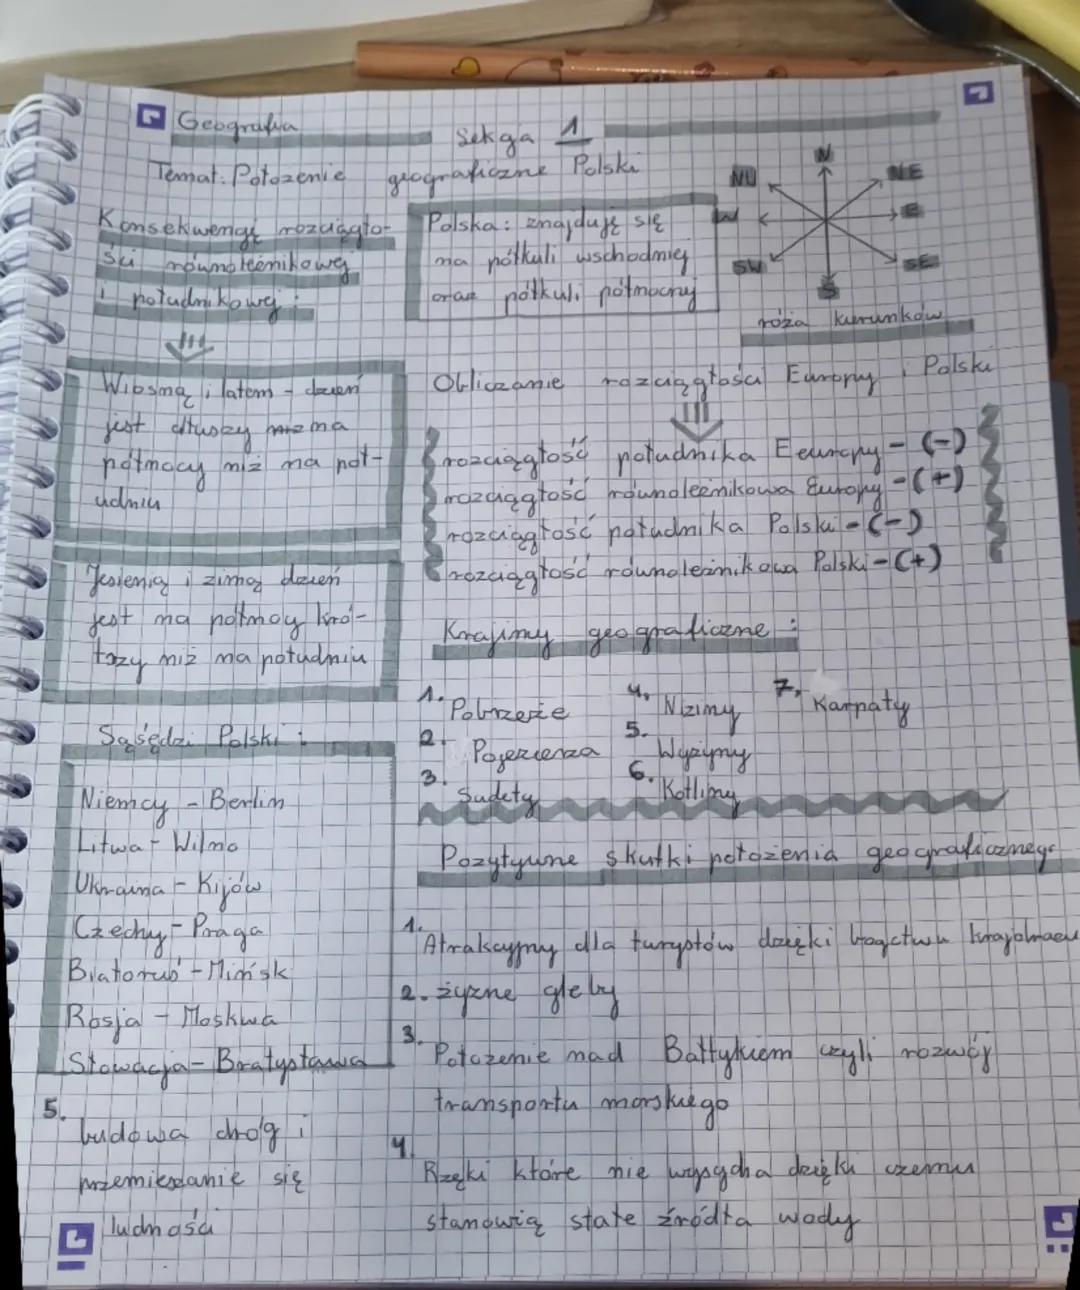 Geografia
Sekcja 1
Temat: Położenie geograficzne Polski
Konsekwencję rozciągło-
ści równoleżnikowej
i południkowej :
Polska: znajduję się
na półkuli wschodniej
oraz półkuli północnej
N
NE
E
SE
S
SW
W
NW
róża kierunków
Wiosną i latem - dzień
jest dłuższy na
północy niż na poł-
udniu
Jesienią i zimą dzień
jest na północy kró-
tszy niż na południu
Obliczanie rozciągłości Europy i Polski
rozciągłość południka Europy - (-)
rozciągłość równoleżnikowa Europy - (+)
rozciągłość południka Polski - (-)
rozciągłość równoleżnikowa Polski - (+)
Krainy geograficzne :
1. Pobrzeże
2. Pojezierza
3. Sudety
4. Niziny
5. Wyżyny
6. Kotliny
7. Karpaty
Sąsędzi Polski :
Niemcy - Berlin
Litwa - Wilno
Ukraina - Kijów
Czechy - Praga
Białoruś - Mińsk
Rosja - Moskwa
Słowacja - Bratysława
Pozytywne skutki położenia geograficznego
1. Atrakcyjny dla turystów dzięki bogactwu krajobrazu
2. żyzne gleby
3. Położenie nad Bałtykiem czyli rozwój
transportu morskiego
4. Rzęki które nie wysycha dzięki czemu
stanowią stałe źródła wody
5. budowa dróg i
przemieszanie się
ludności